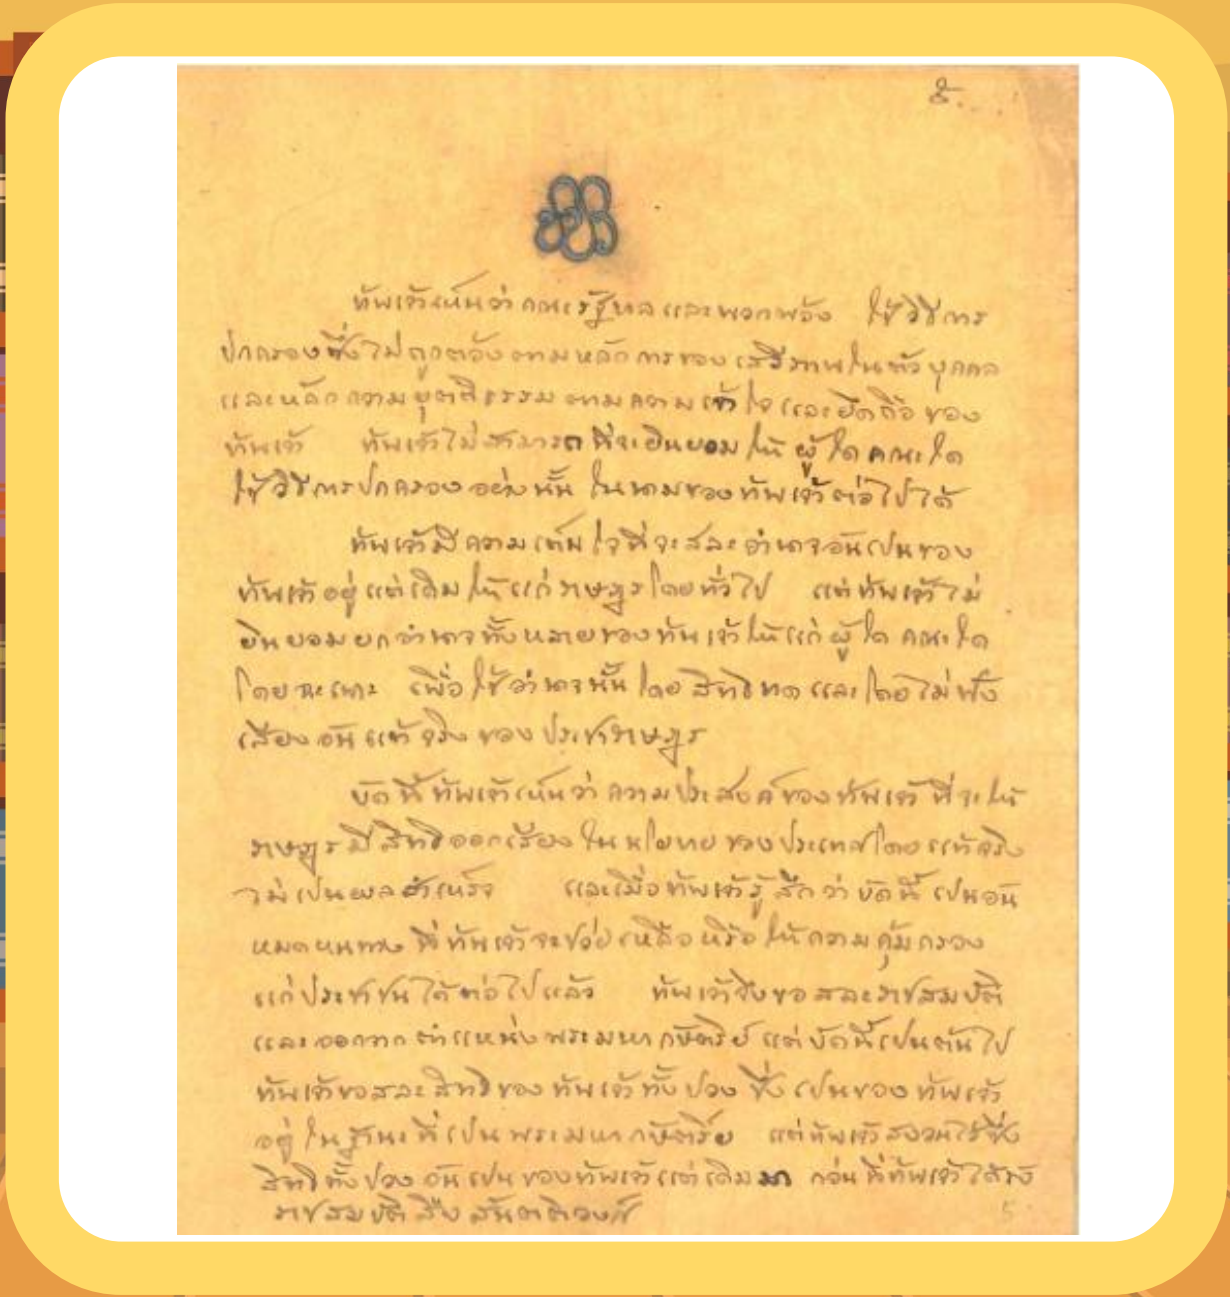 ๕.
ข้าพเจ้าเห็นว่าคณะรัฐบาลและพวกพ้อง ใช้วิธีการ
ปกครองซึ่งไม่ถูกต้องตามหลักการของเสรีภาพในตัวบุคคล
และหลักความยุตติธรรมตามความเข้าใจและยึดถือของ
ข้าพเจ้า ข้าพเจ้าไม่สามารถที่จะยินยอมให้ผู้ใด คณะใด
ใช้วิธีการปกครองอย่างนั้น ในนามของข้าพเจ้าต่อไปได้
ข้าพเจ้ามีความเต็มใจที่จะสละอำนาจอันเปนของ
ข้าพเจ้าอยู่แต่เดิมให้แก่ราษฎรโดยทั่วไป แต่ข้าพเจ้าไม่
ยินยอมยกอำนาจทั้งหลายของข้าพเจ้าให้แก่ผู้ใด คณะใด
โดยฉะเพาะ เพื่อใช้อำนาจนั้นโดยสิทธิขาดและโดยไม่ฟัง
เสียงอันแท้จริงของประชาราษฎร
บัดนี้ข้าพเจ้าเห็นว่าความประสงค์ของข้าพเจ้าที่จะให้
ราษฎรมีสิทธิออกเสียงในนโยบายของประเทศโดยแท้จริง
ไม่เปนผลสำเหร็จ และเมื่อข้าพเจ้ารู้สึกว่าบัดนี้เปนอัน
หมดหนทางที่ข้าพเจ้าจะช่วยเหลือหรือให้ความคุ้มครอง
แก่ประชาชนได้ต่อไปแล้ว ข้าพเจ้าจึงขอสละราชสมบัติ
และออกจากตำแหน่งพระมหากษัตริย์ แต่บัดนี้เปนต้นไป
ข้าพเจ้าขอสละสิทธิของข้าพเจ้าทั้งปวง ซึ่งเปนของข้าพเจ้า
อยู่ในฐานะที่เปนพระมหากษัตริย์ แต่ข้าพเจ้าสงวนไว้ซึ่ง
สิทธิทั้งปวงอันเปนของข้าพเจ้าแต่เดิมมา ก่อนที่ข้าพเจ้าได้รับ
ราชสมบัติสืบสันตติวงศ์
5